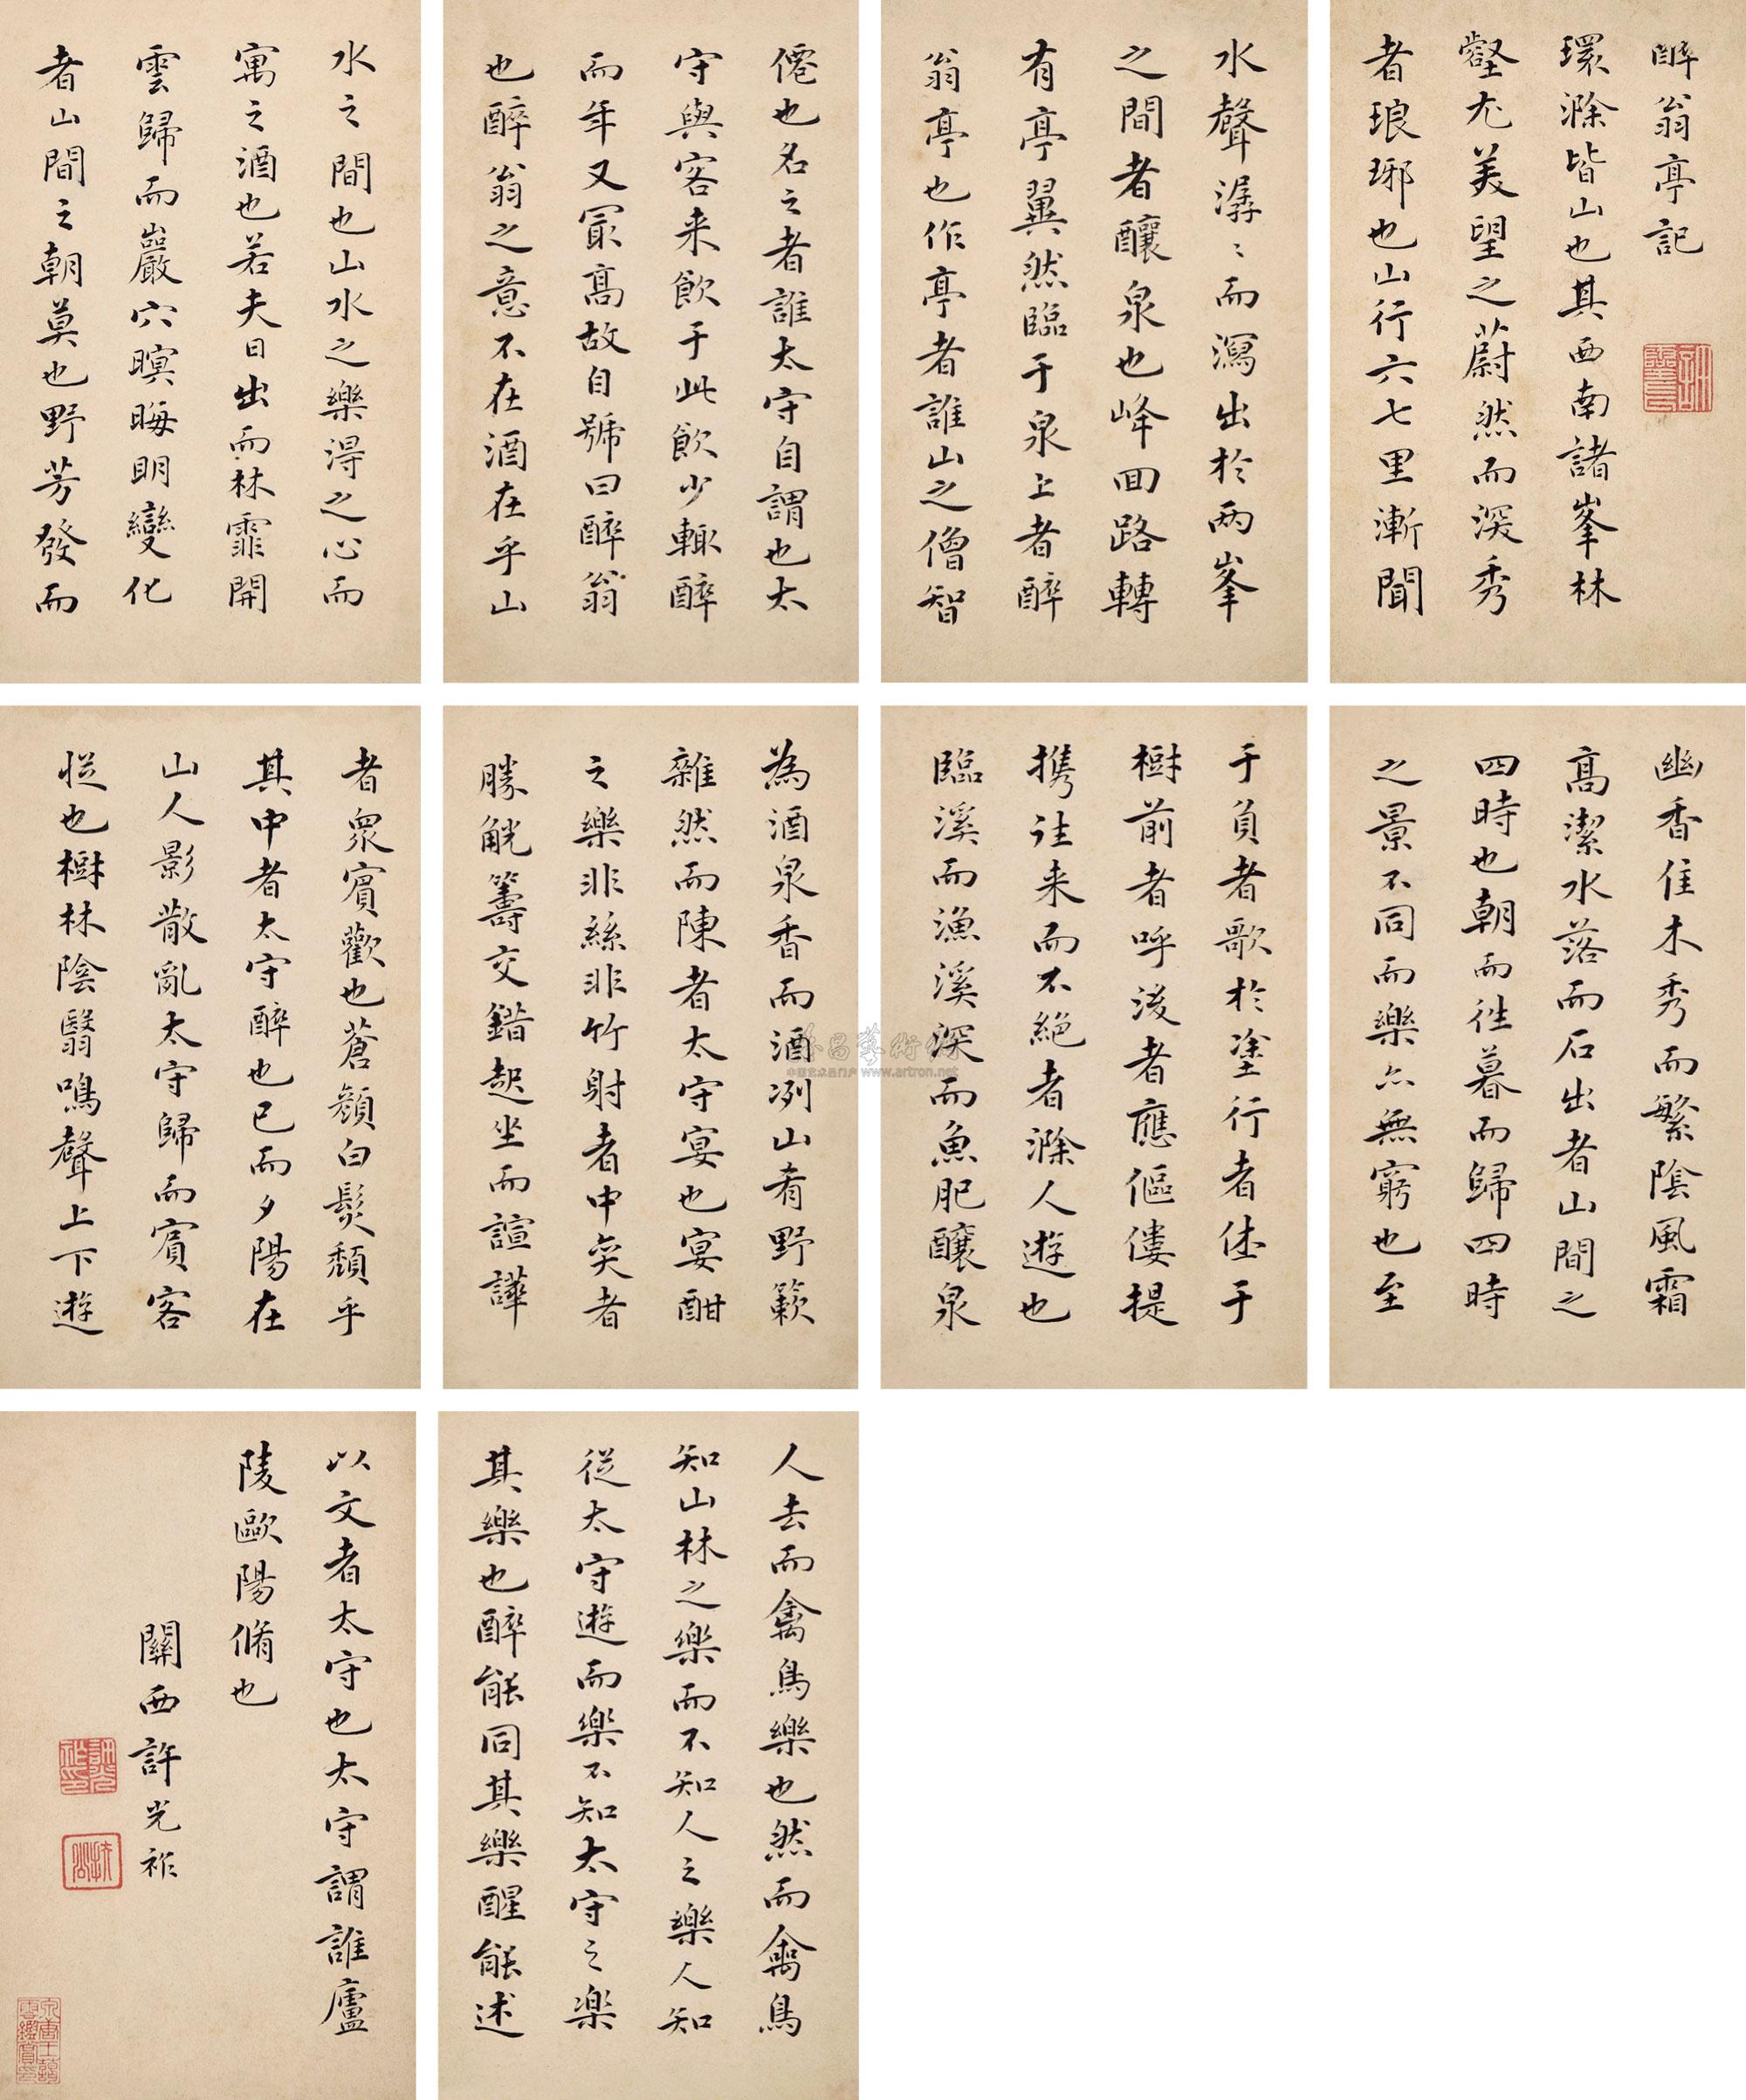 醉翁亭記
環滁皆山也其西南諸峯林
壑尤美望之蔚然而深秀
者琅琊也山行六七里漸聞
水聲潺〻而瀉出於兩峯
之間者釀泉也峰回路轉
有亭翼然臨于泉上者醉
翁亭也作亭者誰山之僧智
僊也名之者誰太守自謂也太
守與客来飲于此飲少輒醉
而年又冣高故自號曰醉翁
也醉翁之意不在酒在乎山
水之間也山水之樂得之心而
寓之酒也若夫日出而林霏開
雲歸而巖穴暝晦明變化
者山間之朝莫也野芳發而
幽香佳木秀而繁陰風霜
高潔水落而石出者山間之
四時也朝而往暮而歸四時
之景不同而樂亦無窮也至
于負者歌於塗行者休于
樹前者呼後者應傴僂提
携往来而不絕者滁人遊也
臨溪而漁溪深而魚肥釀泉
為酒泉香而酒洌山肴野蔌
雜然而陳者太守宴也宴酣
之樂非絲非竹射者中奕者
勝觥籌交錯起坐而諠譁
者眾賓歡也蒼顏白髮頹乎
其中者太守醉也已而夕陽在
山人影散亂太守歸而賓客
從也樹林陰翳鳴聲上下遊
人去而禽鳥樂也然而禽鳥
知山林之樂而不知人之樂人知
從太守遊而樂不知太守之樂
其樂也醉能同其樂醒能述
以文者太守也太守謂誰廬
陵歐陽脩也
關西許光祚
www.artron.net